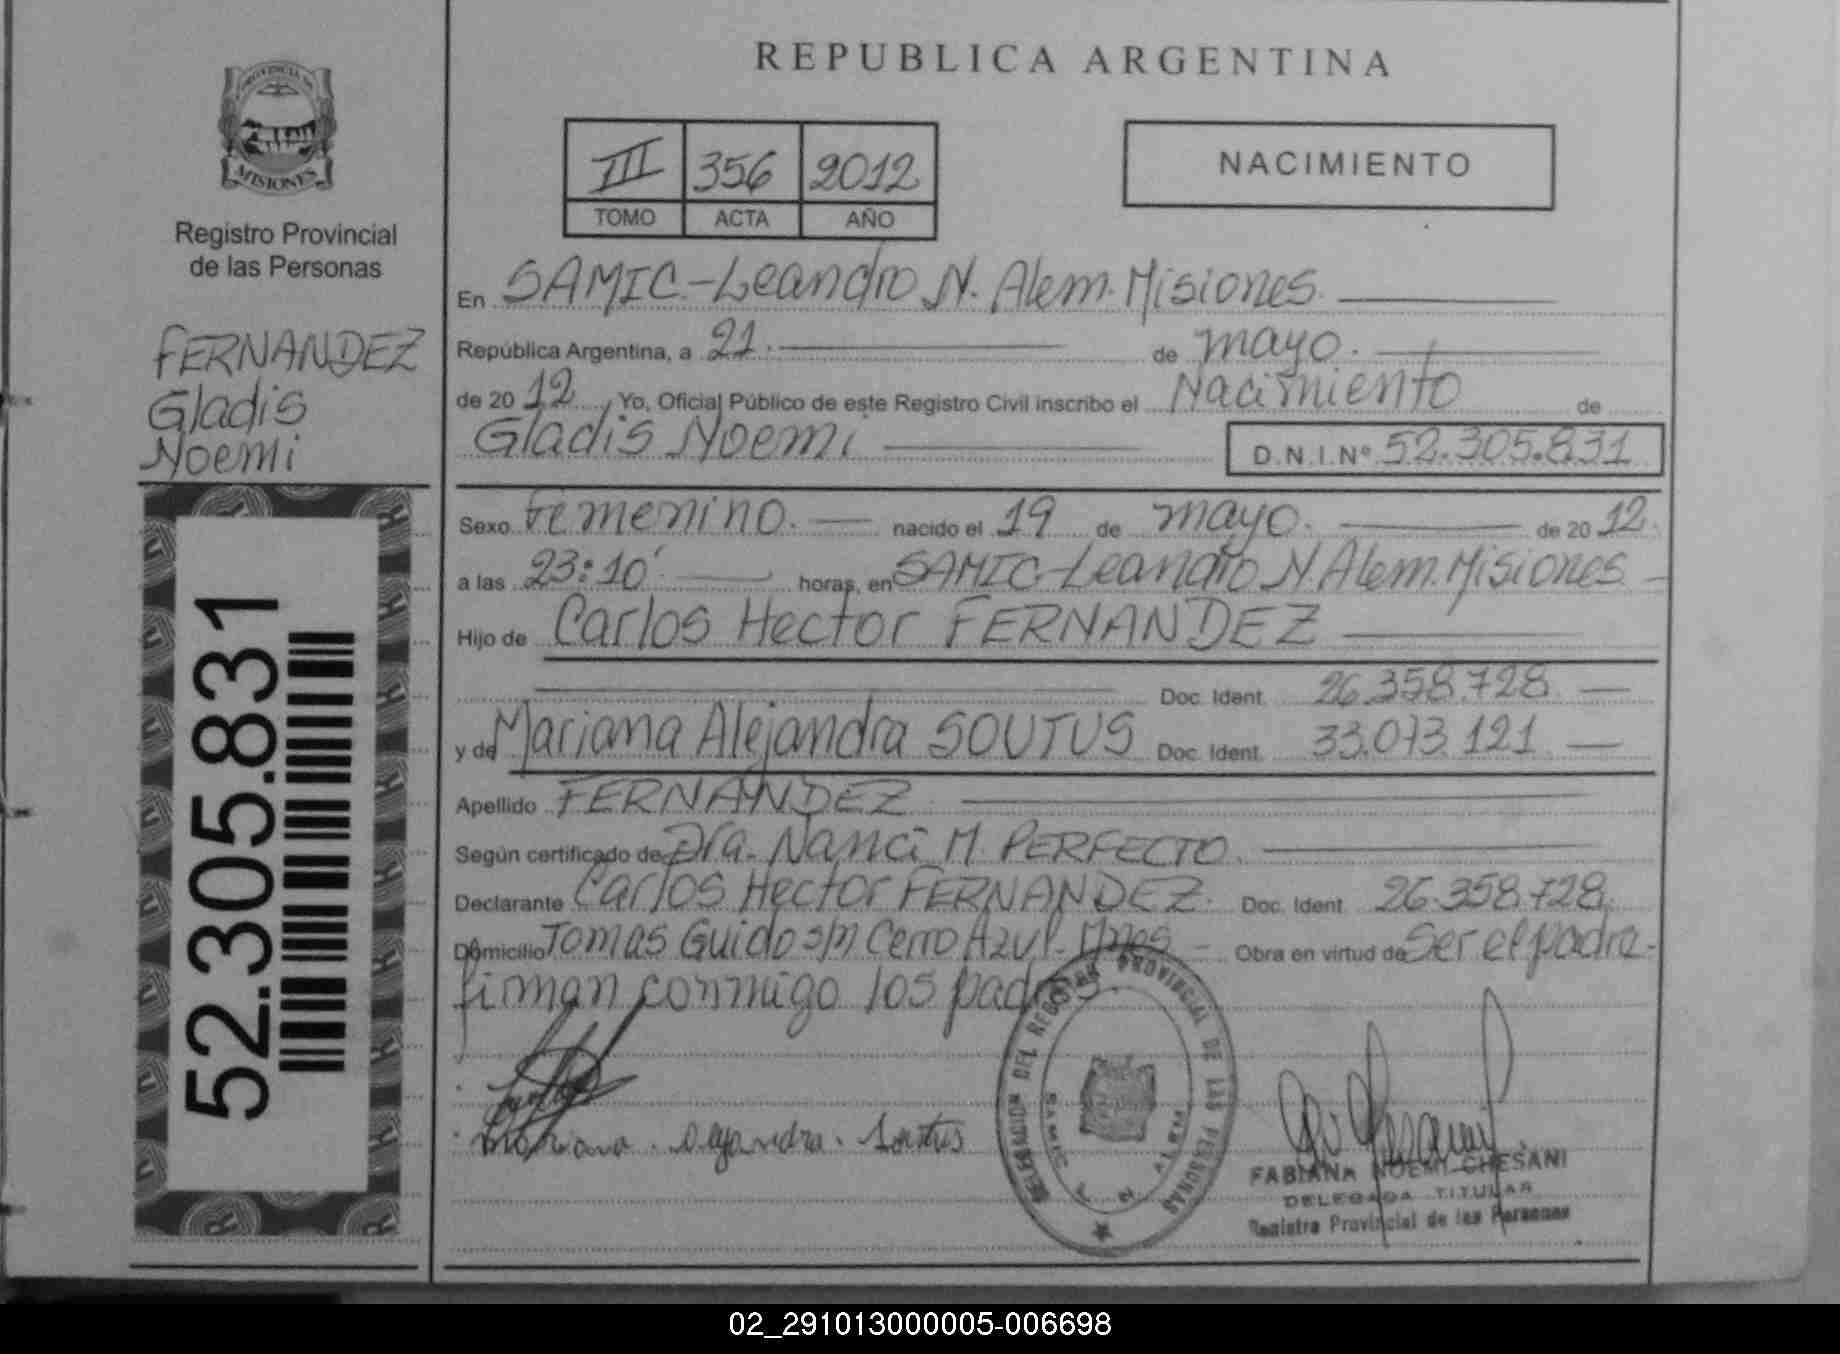 REPUBLICA ARGENTINA
PROVINCIA DE
MISIONES
Registro Provincial
de las Personas
III 356 2012
TOMO ACTA AÑO
NACIMIENTO
FERNANDEZ
Gladis
Noemi
52.305.831
En SAMIC-Leandro N. Alem. Misiones.
República Argentina, a 21. de mayo.
de 2012 Yo, Oficial Público de este Registro Civil inscribo el Nacimiento de
Gladis Noemi D.N.I.Nº 52.305.831
Sexo Femenino. nacido el 19 de mayo. de 2012.
a las 23:10' horas, en SAMIC-Leandro N. Alem. Misiones
Hijo de Carlos Hector FERNANDEZ
Doc. Ident. 26.358.728
y de Mariana Alejandra SOUTUS Doc. Ident. 33.073.121
Apellido FERNANDEZ
Según certificado de Dra. Nanci M. PERFECTO.
Declarante Carlos Hector FERNANDEZ. Doc. Ident. 26.358.728.
Domicilio Tomas Guido s/n Cerro Azul. Mnes - Obra en virtud de Ser el padre.
firman conmigo los padres.
Mariana. Alejandra. Soutus
DELEGACION DEL REGISTRO PROVINCIAL DE LAS PERSONAS
SAMIC
FABIANA NOEMI CHESANI
DELEGADA TITULAR
Registro Provincial de las Personas
02_291013000005-006698